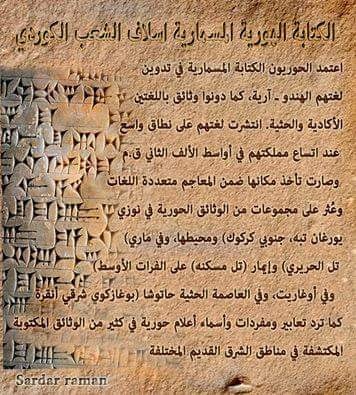 الكتابة الهورية المسمارية اسلاف الشعب الكوردي
اعتمد الحوريون الكتابة المسمارية في تدوين
لغتهم الهندو ـ آرية، كما دونوا وثائق باللغتين
الأكادية والحثية. انتشرت لغتهم على نطاق واسع
عند اتساع مملكتهم في أواسط الألف الثاني ق.م
وصارت تأخذ مكانها ضمن المعاجم متعددة اللغات
وعُثر على مجموعات من الوثائق الحورية في نوزي
يورغان تبه، جنوبي كركوك) ومحيطها، وفي ماري)
تل الحريري) وإيمار (تل مسكنه) على الفرات الأوسط)
وفي أوغاريت، وفي العاصمة الحثية حاتوشا (بوغازكوي شرقي أنقرة
كما ترد تعابير ومفردات وأسماء أعلام حورية في كثير من الوثائق المكتوبة
المكتشفة في مناطق الشرق القديم المختلفة
Sardar raman